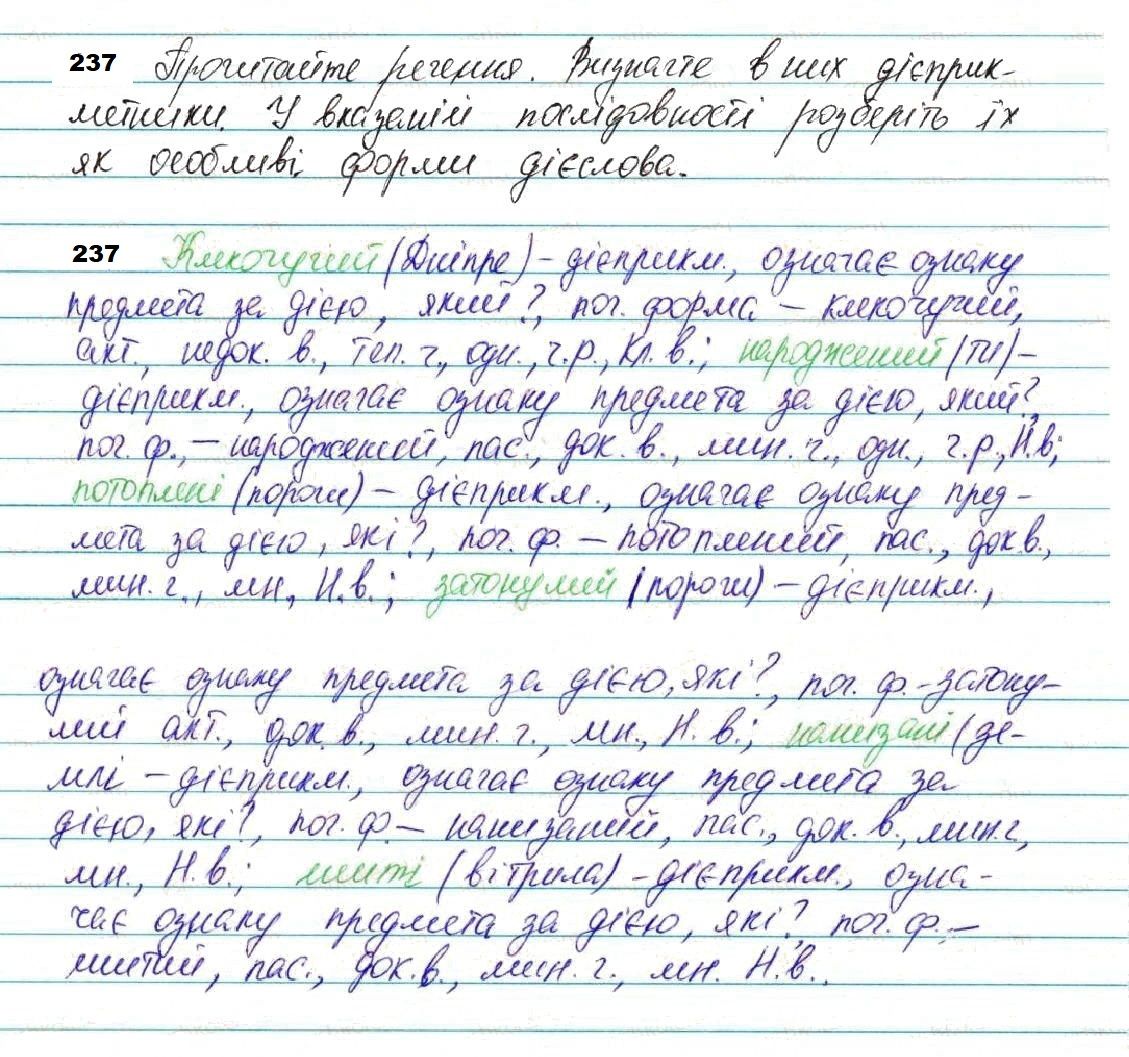 237 Прочитайте речення. Визначте в них дієприк-
метники. У вказаній послідовності розберіть їх
як особливі форми дієслова.
237 Клекочучий (Дніпре) – дієприкм., означає ознаку
предмета за дією, який?, поч. форма – клекочучий,
акт., недок. в., теп. ч., одн., ч.р., Кл. в.; народжений (ти) –
дієприкм., означає ознаку предмета за дією, який?,
поч. ф., – народжений, пас., док. в., мин. ч., одн., ч.р., Н.в;
потоплені (пороги) – дієприкм., означає ознаку пред-
мета за дією, які?, поч. ф. – потоплений, пас., док.в.,
мин. ч., мн., Н.в.; затонулий (пороги) – дієприкм.,
означає ознаку предмета за дією, які?, поч. ф. - затону-
лий акт., док. в., мин. ч., мн., Н. в.; нанизані (зе-
млі – дієприкм., означає ознаку предмета за
дією, які?, поч. ф – нанизаний, пас., док. в., мин.ч,
мн., Н.в.; шиті (вітрила) – дієприкм., озна-
чає ознаку предмета за дією, які? поч. ф. –
шитий, пас., док.в., мин. ч., мн. Н.в..